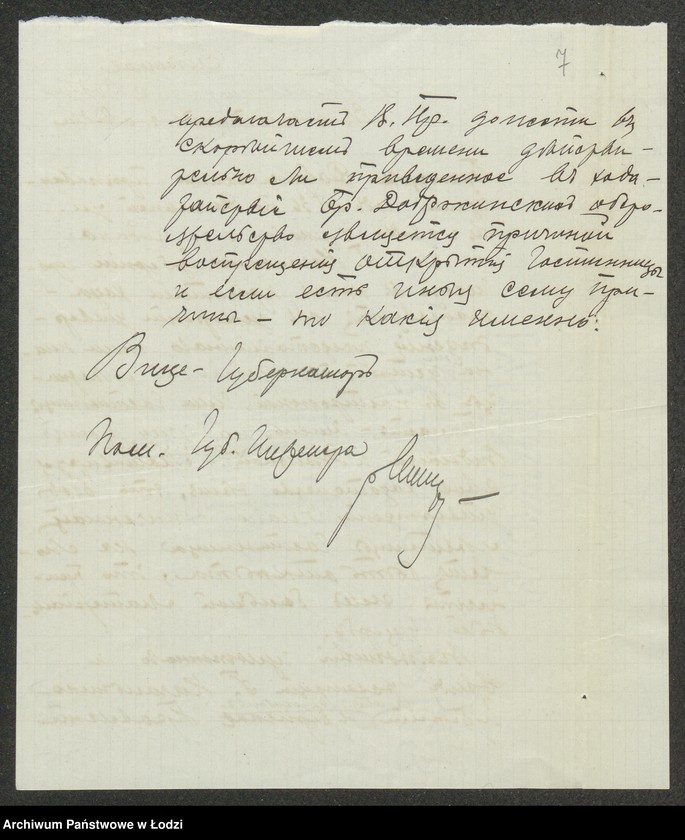 7
предлагаетъ В. Пр. донести въ
скорѣйшемъ времени дѣйстви-
тельно ли приведенное въ хода-
тайствѣ Гр. Добржинскимъ обсто-
ятельство является причиной
воспрещенія открытія гостинницы
и если есть иныя сему при-
чины - то какія именно.
Вице-Губернаторъ
Пом. Губ. Инженера
Archiwum Państwowe w Łodzi